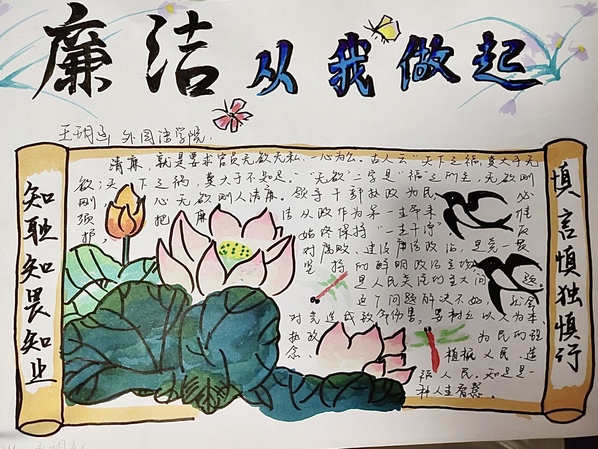 廉洁从我做起
外国语学院
知耻知畏知止
清廉，就是要求官员无欲无私，一心为公。古人云“天下之福，莫大于无
欲；天下之祸，莫大于不知足。”“无欲”二字是“福”之所在，无欲则
刚 心无欲则人清廉。领导干部执政为民， 必
须 把廉 洁从政作为第一生命来 维
护， 始终保持“一身干净”
对腐败、建设廉洁政治，是党一
坚持的鲜明政治立场
是人民关注的重大问题。
这个问题解决不好，就会
对党造成致命伤害，要树立以人为本
执政 为民的理
念 植根人民，造
福人民，知足是一
种人生智慧。
慎言慎独慎行